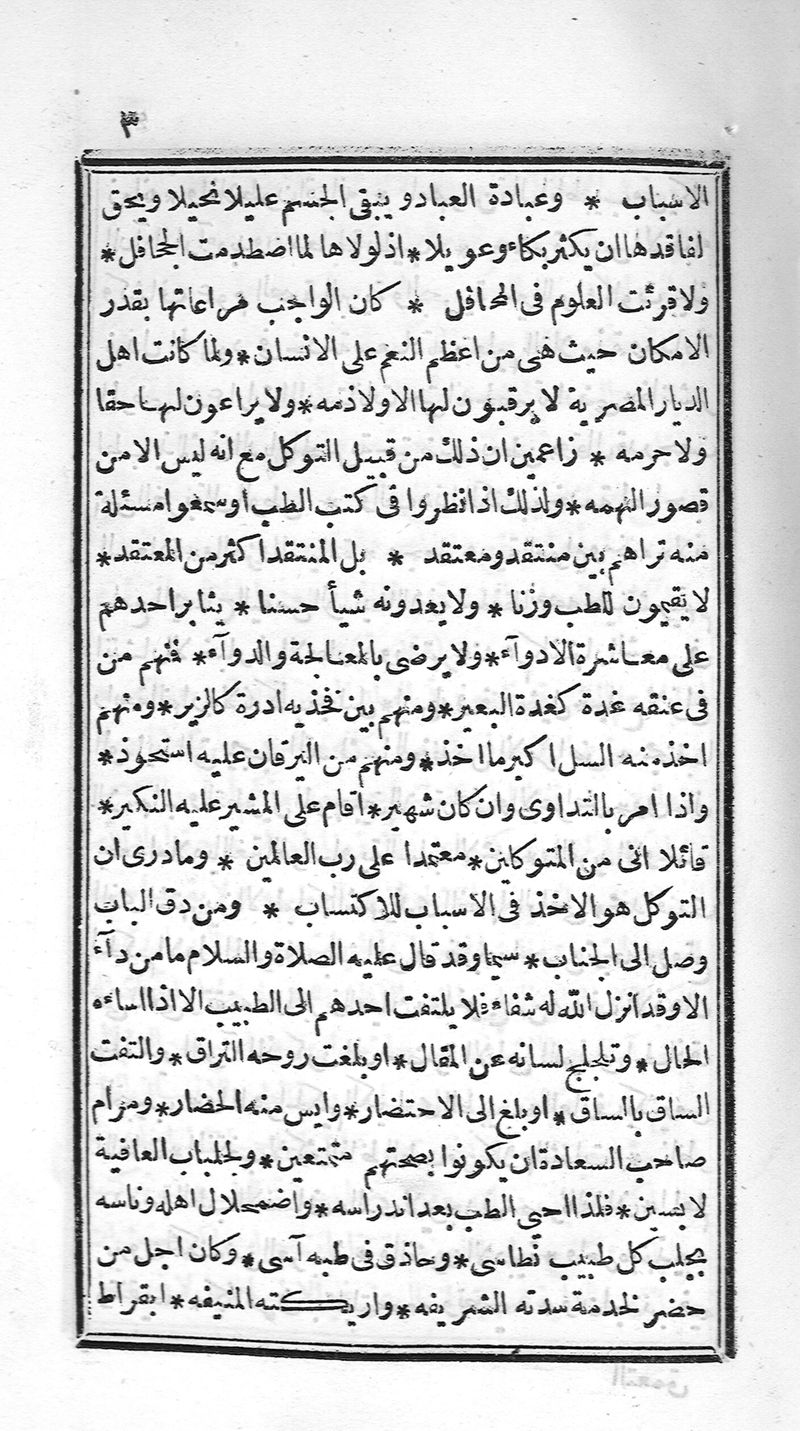 ٣
الاسباب * وعبادة العباد ويبقى الجسم عليلا نحيلا ويحق
لفاقدها ان يكثر بكاء وعويلا * اذ لولاها لما اضطدمت الجحافل *
ولا قرئت العلوم فى المحافل * كان الواجب مراعاتها بقدر
الامكان حيث هى من اعظم النعم على الانسان * ولما كانت اهل
الديار المصرية لا يرقبون لها الا ولا ذمه * ولا يراعون لها حقا
ولا حرمه * زاعمين ان ذلك من قبيل التوكل مع انه ليس الا من
قصور الهمه * ولذلك اذا نظروا فى كتب الطب او سمعوا مسئلة
منه تراهم بين منتقد ومعتقد * بل المنتقد اكثر من المعتقد *
لا يقيمون للطب وزنا * ولا يعدونه شيأ حسنا * يثابر احدهم
على معاشرة الادوآء * ولا يرضى بالمعالجة والدوآء * فنهم من
فى عنقه غدة كغدة البعير * ومنهم بين فخذيه ادرة كالزير * ومنهم
اخذ منه السل اكبر ما اخذ * ومنهم من اليرقان عليه استحوذ *
واذا امر بالتداوى وان كان شهير * اقام على المشير عليه النكير *
قائلا انى من المتوكلين * معتمدا على رب العالمين * وما درى ان
التوكل هو الاخذ فى الاسباب للاكتساب * ومن دق الباب
وصل الى الجناب * سيما وقد قال عليه الصلاة والسلام ما من دآء
الا وقد انزل الله له شفاء فلا يلتفت احدهم الى الطبيب الا اذا اساءه
الحال * وتلجلج لسانه عن المقال * او بلغت روحه التراق * والتفت
الساق بالساق * او بلغ الى الاحتضار * وايس منه الحضار * ومرام
صاحب السعادة ان يكونوا بصحتهم متمتعين * ولجلباب العافية
لابسين * فلذا احيى الطب بعد اندراسه * واضمحلال اهله وناسه
بجلب كل طبيب نطاسى * وحاذق فى طبه آسى * وكان اجل من
حضر لخدمة سدته الشريفه * واريكته المنيفه * ابقراط